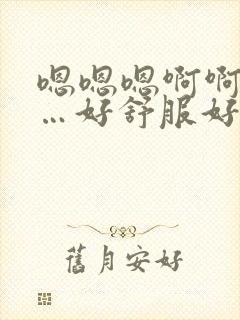 嗯嗯嗯啊啊
…好舒服好
舊月安好